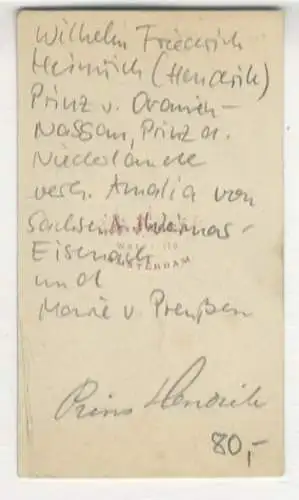 Wilhelm Friederich
Heinrich (Hendrik)
Prinz v. Oranien-
Nassau, Prinz d.
Niederlande
verh. Amalia von
Sachsen-Weimar-
Eisenach
AMSTERDAM
und
Marie v. Preußen
Prins Hendrik
80,-